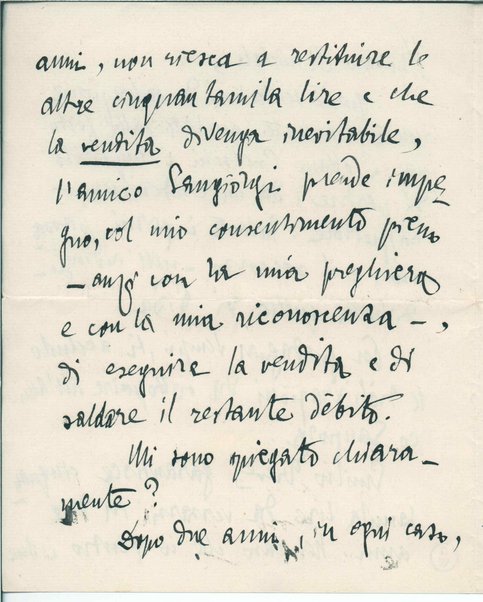 anni, non riesca a restituire le
altre cinquantamila lire e che
la vendita divenga inevitabile,
l'amico Sangiorgi prende impe-
gno, col mio consentimento pieno
— anzi con la mia preghiera
e con la mia riconoscenza —,
di eseguire la vendita e di
saldare il restante debito.
Mi sono spiegato chiara-
mente?
Dopo due anni, in ogni caso,